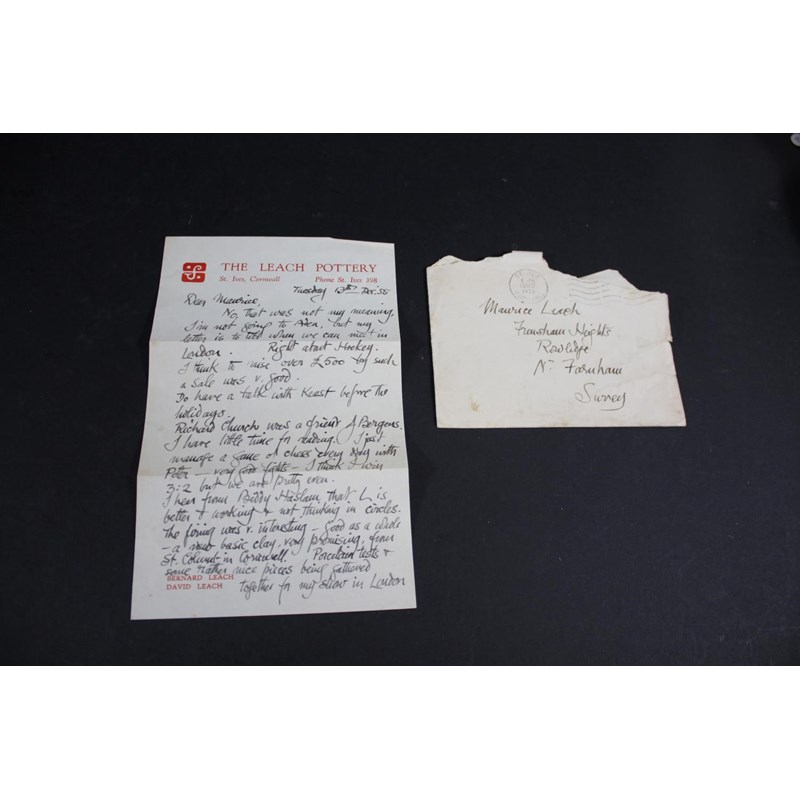 THE LEACH POTTERY
St. Ives, Cornwall Phone St. Ives 398
Tuesday Dec. 55
Dear Maurice,
No, that was not my meaning.
I'm not going to , but my
letter is to when we can meet in
London. Right about Hockey.
I think to raise over £500 by such
a sale was v. good.
Do have a talk with Keast before the
holidays.
Richard Church was a friend of Bergens.
I have little time for reading. I just
manage a game of chess every day with
Peter — very good fights — I think I win
3:2 but we are pretty even.
I hear from Biddy Haslam that L is
better & working & not thinking in circles.
The firing was v. interesting — good as a whole
— a new basic clay, very promising, from
St. Columb in Cornwall. Porcelain tests &
some rather nice pieces being gathered
together for my show in London
BERNARD LEACH
DAVID LEACH
Maurice Leach
Frensham Heights
Rowledge
Nr Farnham
Surrey